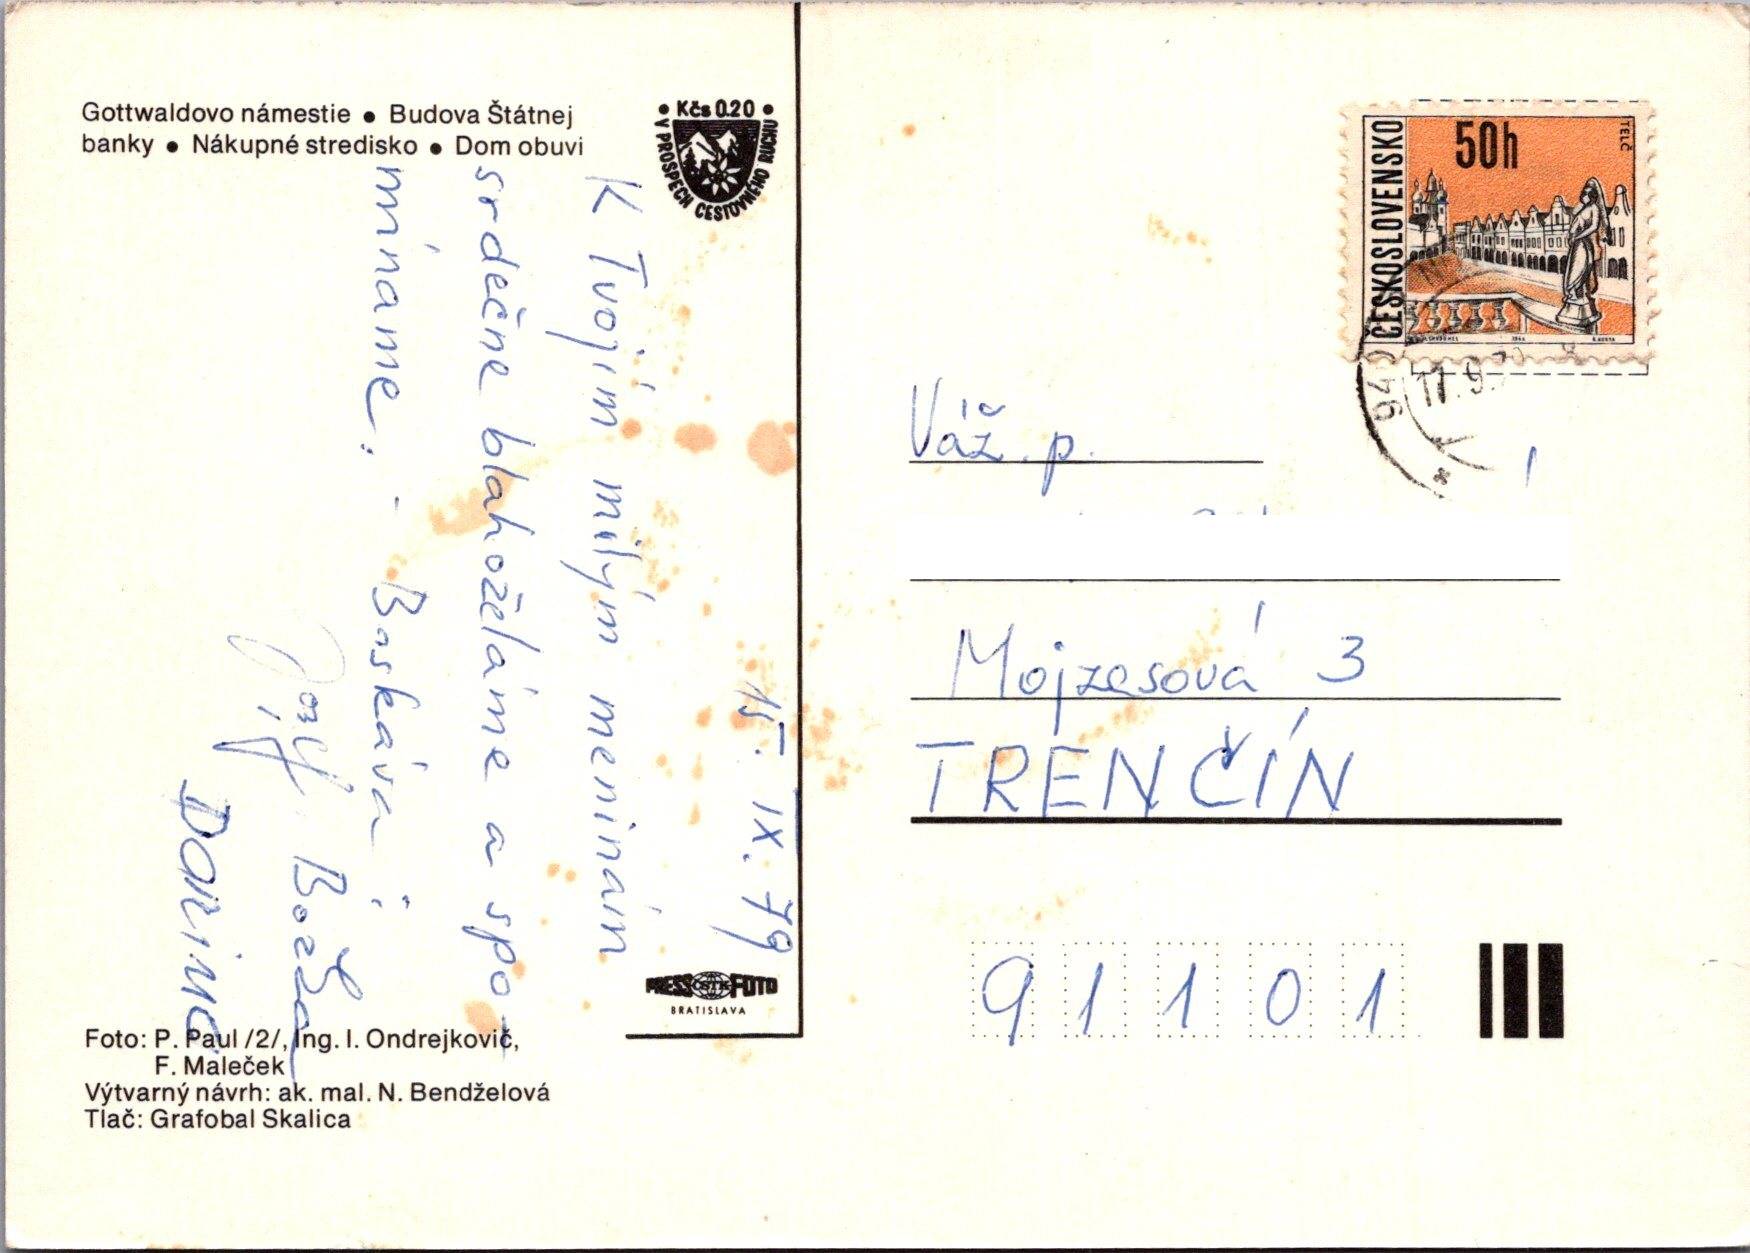 Gottwaldovo námestie • Budova Štátnej
banky • Nákupné stredisko • Dom obuvi
• Kčs 0.20 •
V PROSPECH CESTOVNÉHO RUCHU
15. IX. 79
K Tvojím milým meninám
srdečne blahoželáme a spo-
míname. -
Božka
Darina
PRESSFOTO
BRATISLAVA
Foto: P. Paul /2/, Ing. I. Ondrejkovič,
F. Maleček
Výtvarný návrh: ak. mal. N. Bendželová
Tlač: Grafobal Skalica
ČESKOSLOVENSKO
50h
TELČ
940
17.9.
Váž. p.
Mojzesová 3
TRENČÍN
91101